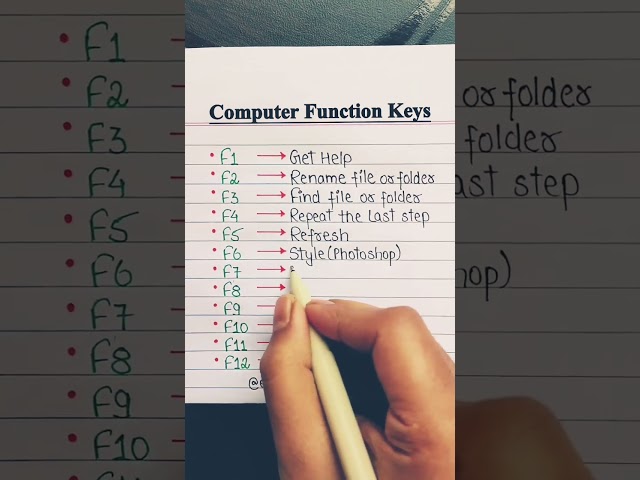 Computer Function Keys
• F1 → Get Help
• F2 → Rename file or folder
• F3 → Find file or folder
• F4 → Repeat the last step
• F5 → Refresh
• F6 → Style (Photoshop)
• F7 →
• F8 →
• F9
• F10
• F11
• F12